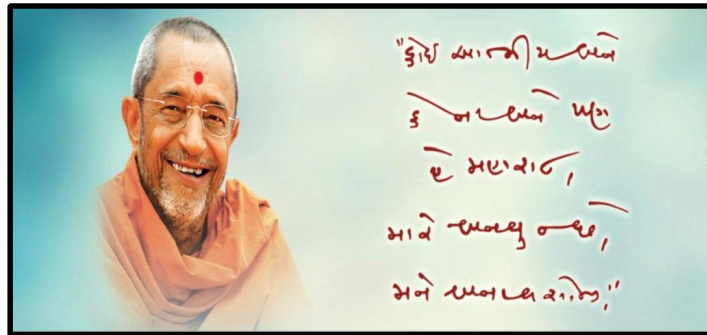 "કોઈ આત્મીય બને
કે ન બને પણ
હે મહારાજ,
મારે બનવું જ છે,
મને